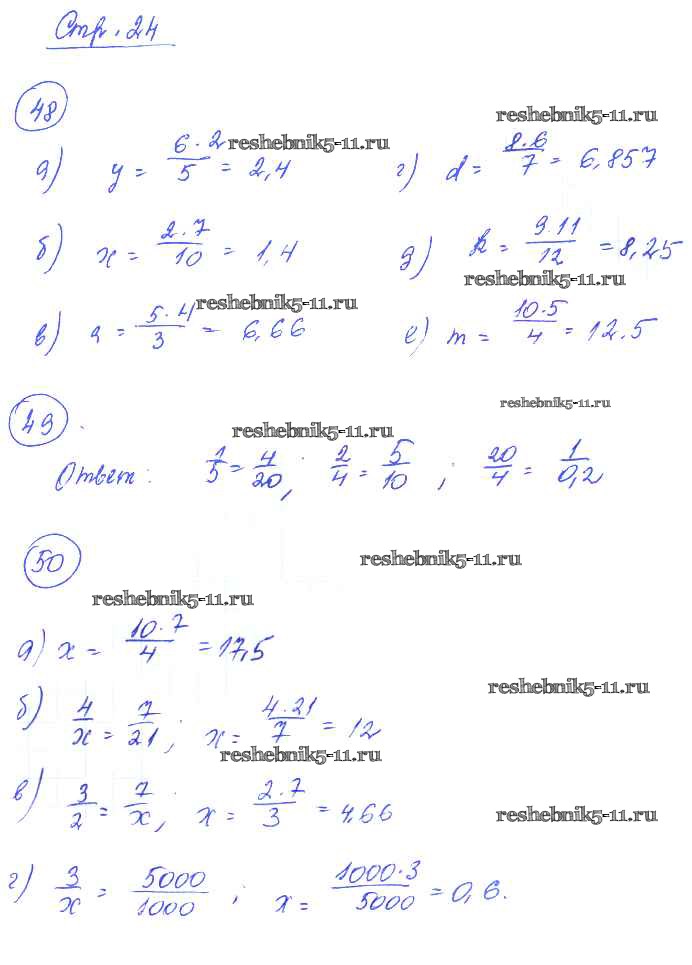 Стр. 24
48
reshebnik5-11.ru
а) y = 6·2/5 = 2,4
reshebnik5-11.ru
г) d = 8·6/7 = 6,857
б) x = 2·7/10 = 1,4
д) k = 9·11/12 = 8,25
reshebnik5-11.ru
в) a = 5·4/3 = 6,66
reshebnik5-11.ru
е) m = 10·5/4 = 12.5
49
reshebnik5-11.ru
reshebnik5-11.ru
Ответ: 1/5 = 4/20; 2/4 = 5/10; 20/4 = 1/0,2
50
reshebnik5-11.ru
reshebnik5-11.ru
а) x = 10·7/4 = 17,5
reshebnik5-11.ru
б) 4/x = 7/21; x = 4·21/7 = 12
reshebnik5-11.ru
в) 3/2 = 7/x, x = 2·7/3 = 4,66
reshebnik5-11.ru
г) 3/x = 5000/1000; x = 1000·3/5000 = 0,6.